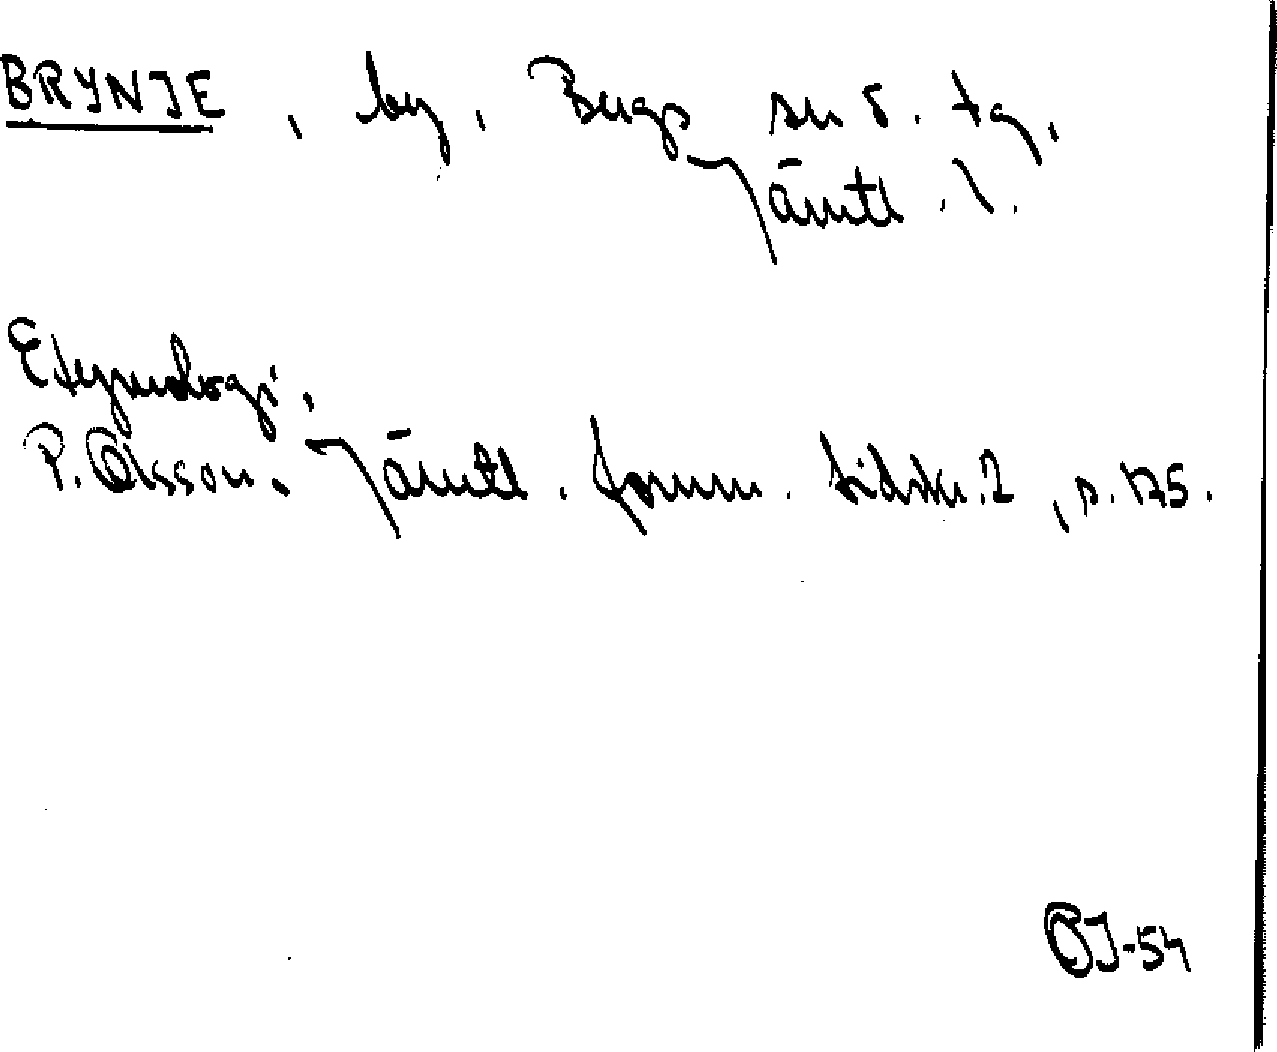 BRYNJE, by, Bergs sn o. tg,
Jämtl. l.
Etymologi.
P. Olsson. Jämtl. fornm. tidskr. 2, s. 175.
OJ-54